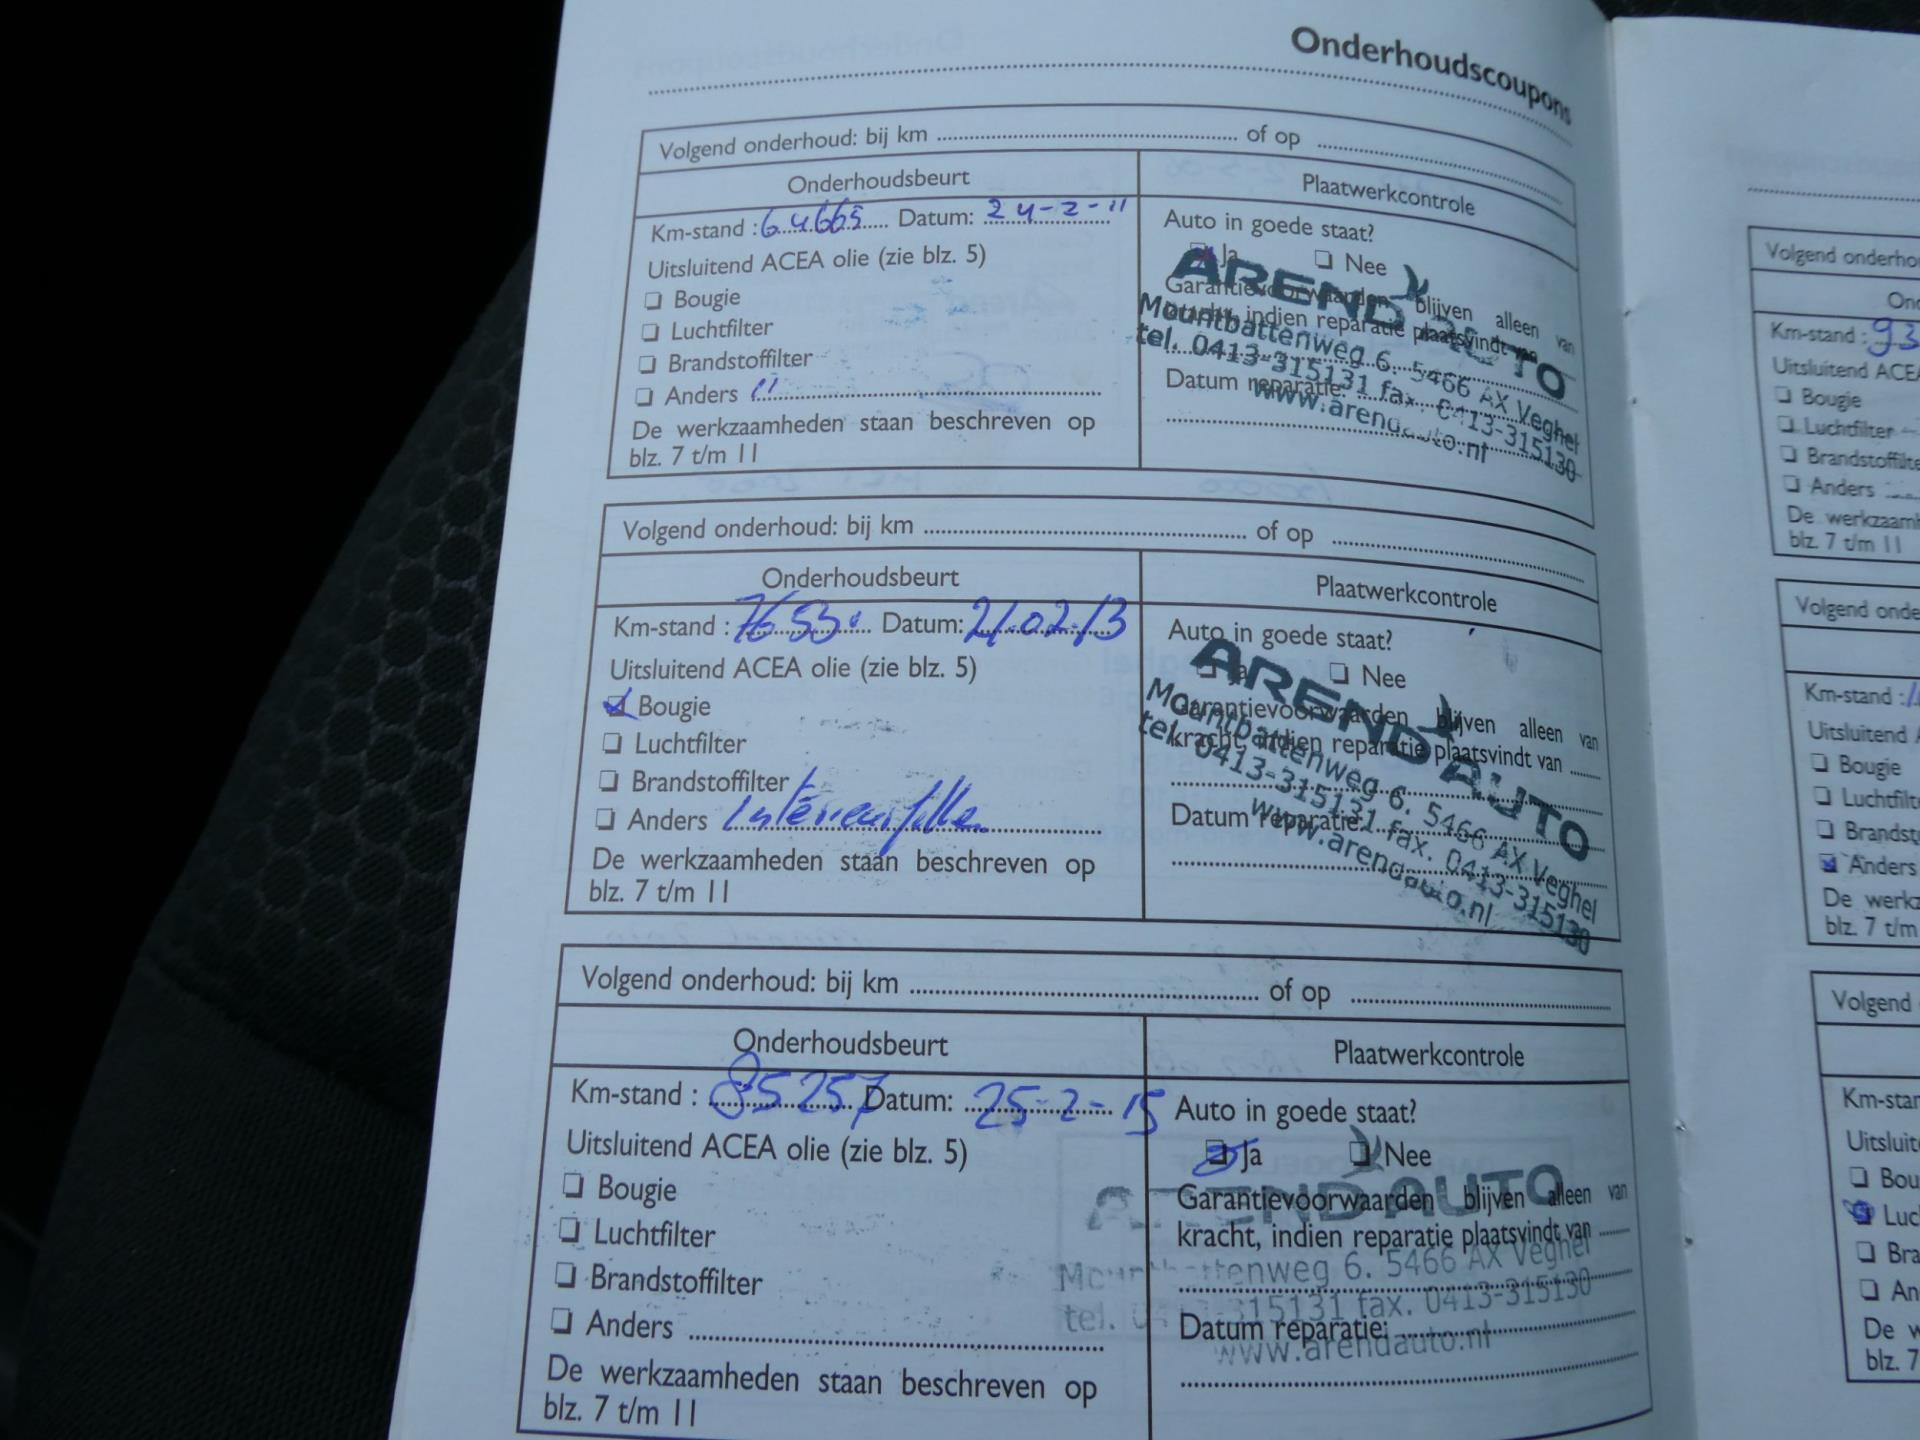 Onderhoudscoupons
Volgend onderhoud: bij km ........ of op ........
Onderhoudsbeurt
Plaatwerkcontrole
Km-stand : 64665 Datum: 24-2-11
Auto in goede staat?
Uitsluitend ACEA olie (zie blz. 5)
Ja Nee
Bougie
Garantievoorwaarden blijven alleen van
Luchtfilter
kracht, indien reparatie plaatsvindt van
Brandstoffilter
Datum reparatie:
Anders
De werkzaamheden staan beschreven op
blz. 7 t/m 11
AREND AUTO
Mountbattenweg 6. 5466 AX Veghel
tel. 0413-315131 fax. 0413-315130
www.arendauto.nl
Volgend onderhoud: bij km ........ of op ........
Onderhoudsbeurt
Plaatwerkcontrole
Km-stand : 76530 Datum: 21-02-13
Auto in goede staat?
Uitsluitend ACEA olie (zie blz. 5)
Ja Nee
Bougie
Garantievoorwaarden blijven alleen van
Luchtfilter
kracht, indien reparatie plaatsvindt van ......
Brandstoffilter
Anders Interieurfilter
Datum reparatie:
De werkzaamheden staan beschreven op
blz. 7 t/m 11
AREND AUTO
Mountbattenweg 6. 5466 AX Veghel
tel. 0413-315131 fax. 0413-315130
www.arendauto.nl
Volgend onderhoud: bij km ........ of op ........
Onderhoudsbeurt
Plaatwerkcontrole
Km-stand : 85257 Datum: 25-2-15
Auto in goede staat?
Uitsluitend ACEA olie (zie blz. 5)
Ja Nee
Bougie
Garantievoorwaarden blijven alleen van
Luchtfilter
kracht, indien reparatie plaatsvindt van ......
Brandstoffilter
Anders
Datum reparatie:
De werkzaamheden staan beschreven op
blz. 7 t/m 11
AREND AUTO
Mountbattenweg 6. 5466 AX Veghel
tel. 0413-315131 fax. 0413-315130
www.arendauto.nl
Volgend
Km-stand : 93
Uitsluitend
Bougie
Luchtfilter
Anders
De
blz. 7 t/m 11
Volgend
Km-stand :
Uitsluitend
Bougie
Anders
De
blz. 7 t/m
Volgend
De
blz. 7